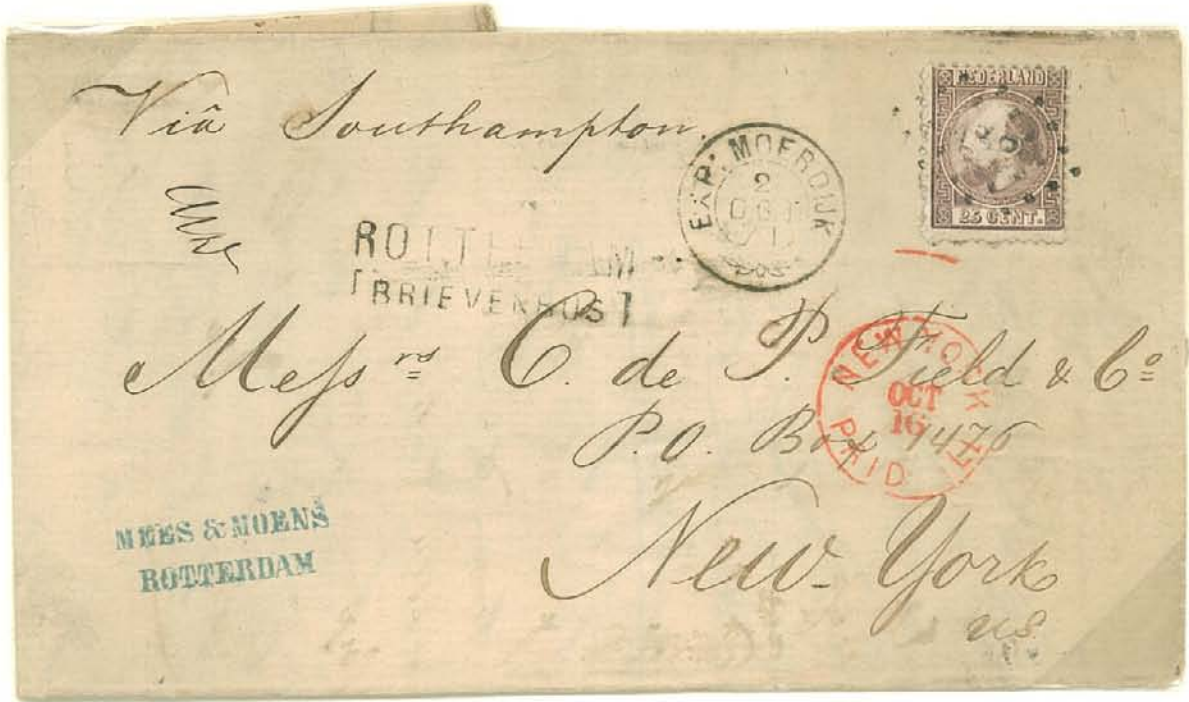 Viâ Southampton.
NEDERLAND
25 CENT.
EXP: MOERDIJK
2
OCT
71
ROTTERDAM
[BRIEVENBUS]
Messrs C. de P. Field & Co
P.O. Box
NEW YORK
OCT
16
PAID
New-York
US
MEES & MOENS
ROTTERDAM